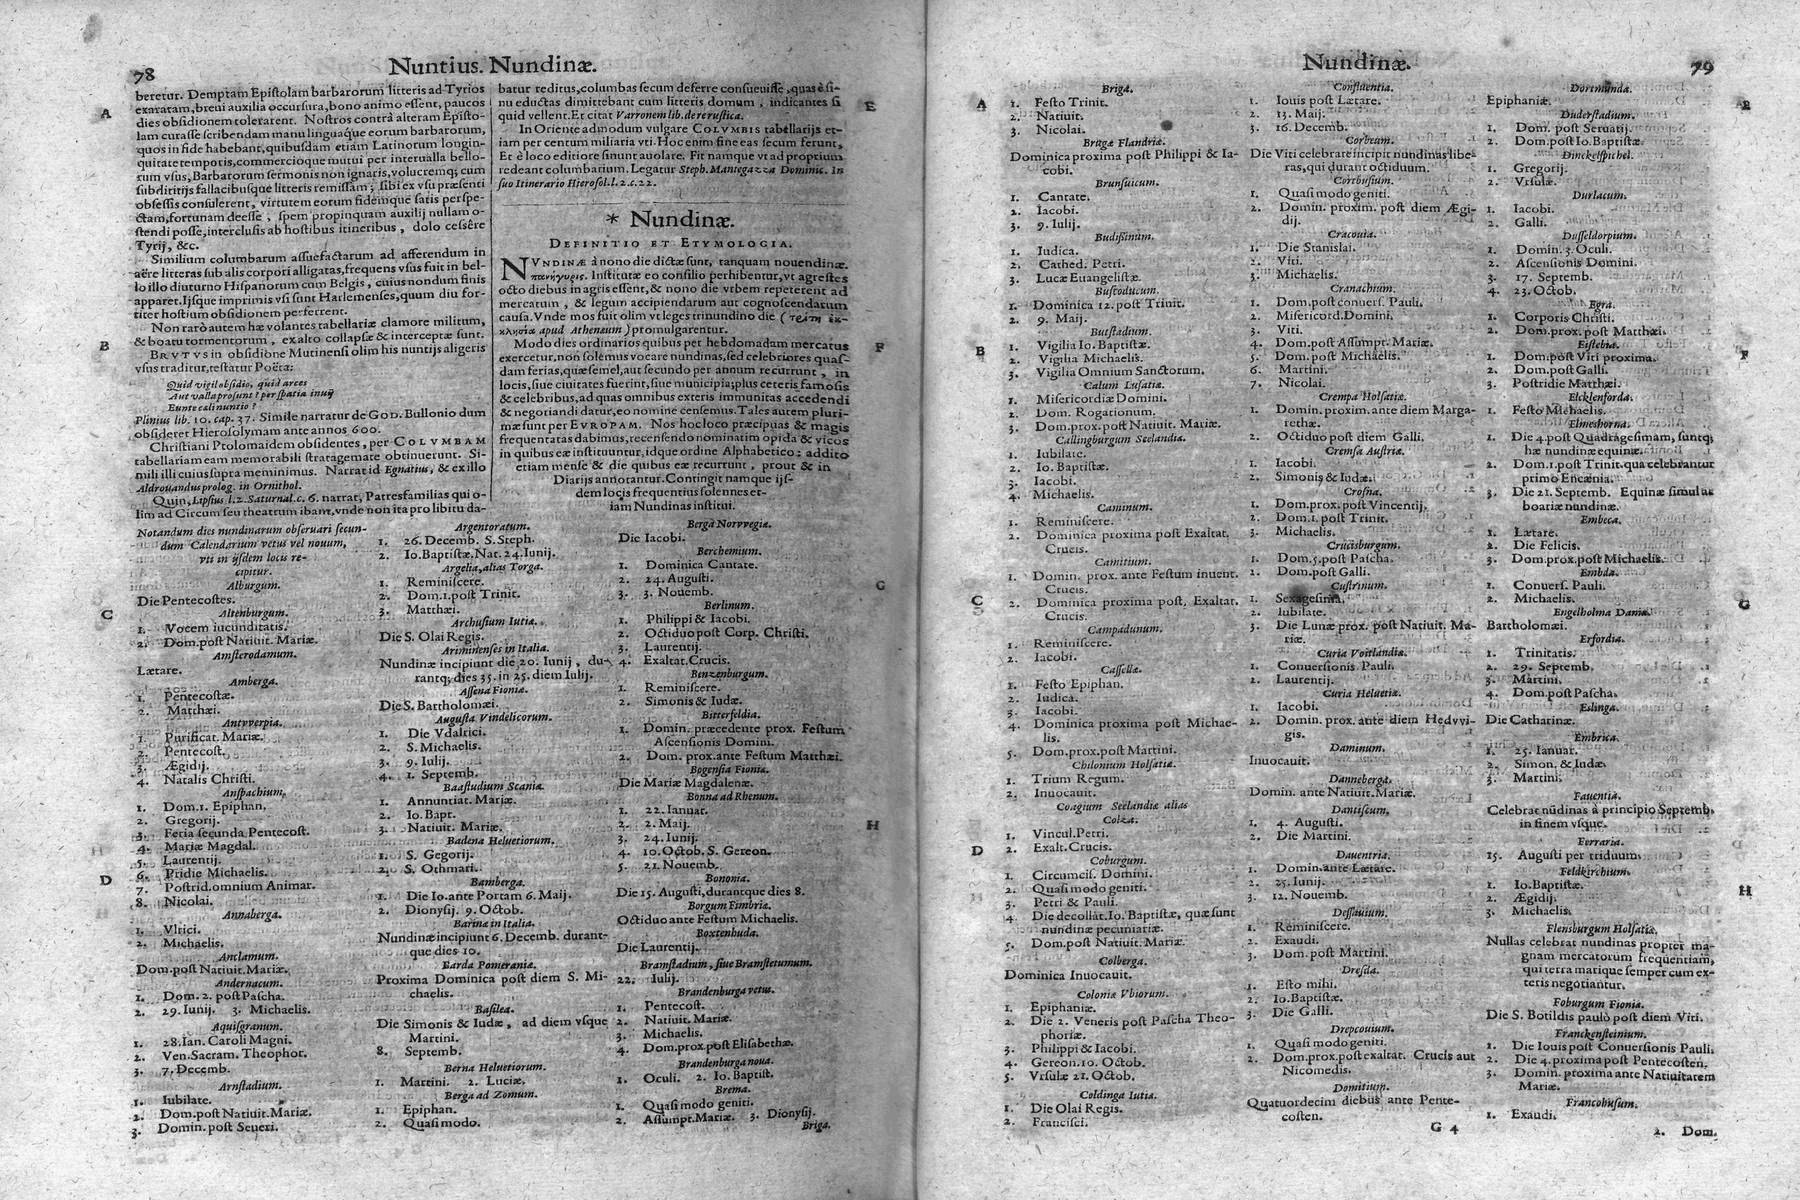 78
Nuntius. Nundinæ.
beretur. Demptam Epistolam barbarorum litteris ad Tyrios
exaratam, breui auxilia occursura, bono animo essent, paucos
dies obsidionem tolerarent. Nostros contrà alteram Episto-
lam curasse scribendam manu linguaq́ue eorum barbarorum,
quos in fide habebant, quibusdam etiam Latinorum longin-
quitate temporis, commercioque mutui per interualla bello-
rum vsus, Barbarorum sermonis non ignaris, volucremq; cum
subditítijs fallacibusque litteris remissam; sibi ex vsu præsenti
obsessis consulerent, virtutem eorum fidemque satis perspe-
ctam, fortunam deesse, spem propinquam auxilij nullam o-
stendi posse, interclusis ab hostibus itineribus, dolo cessêre
Tyrij, &c.
Similium columbarum assuefactarum ad afferendum in
aëre litteras sub alis corpori alligatas, frequens vsus fuit in bel-
lo illo diuturno Hispanorum cum Belgis, cuius nondum finis
apparet. Ijsque imprimis vsi sunt Harlemenses, quum diu for-
titer hostium obsidionem perferrent.
Non rarò autem hæ volantes tabellariæ clamore militum,
& boatu tormentorum, exalto collapsæ & interceptæ sunt.
BRVTVS in obsidione Mutinensi olim his nuntijs aligeris
vsus traditur, testatur Poëta:
Quid vigil obsidio, quid arces
Aut valla prosunt? per spatia inuij
Eunte cæli nuntio?
Plinius lib. 10. cap. 37. Simile narratur de GOD. Bullonio dum
obsideret Hierosolymam ante annos 600.
Christiani Ptolomaidem obsidentes, per COLVMBAM
tabellariam eam memorabili stratagemate obtinuerunt. Si-
mili illi cuius supra meminimus. Narrat id Egnatius, & ex illo
Aldrouandus prolog. in Ornithol.
Quin, Lipsius l.2. Saturnal. c. 6. narrat, Patresfamilias qui o-
lim ad Circum seu theatrum ibant, vnde non ita pro libitu da-
batur reditus, columbas secum deferre consueuisse, quas è si-
nu eductas dimittebant cum litteris domum, indicantes si
quid vellent. Et citat Varronem lib. de re rustica.
In Oriente admodum vulgare COLVMBIS tabellarijs et-
iam per centum miliaria vti. Hoc enim fine eas secum ferunt,
Et è loco editiore sinunt auolare. Fit namque vt ad proprium
redeant columbarium. Legatur Steph. Mantegazza Dominic. In
suo Itinerario Hierosol. l.2.c.22.
* Nundinæ.
DEFINITIO ET ETYMOLOGIA.
NVNDINÆ à nono die dictæ sunt, tanquam nouendinæ.
πανήγυρις. Institutæ eo consilio perhibentur, vt agrestes
octo diebus in agris essent, & nono die vrbem repeterent ad
mercatum, & legum accipiendarum aut cognoscendarum
causa. Vnde mos fuit olim vt leges trinundino die (τρίτη ἐκ-
κλησία apud Athenæum) promulgarentur.
Modo dies ordinarios quibus per hebdomadam mercatus
exercetur, non solemus vocare nundinas, sed celebriores quas-
dam ferias, quæ semel, aut secundo per annum recurrunt, in
locis, siue ciuitates fuerint, siue municipia; plus ceteris famosis
& celebribus, ad quas omnibus exteris immunitas accedendi
& negotiandi datur, eo nomine censemus. Tales autem pluri-
mæ sunt per EVROPAM. Nos hoc loco præcipuas & magis
frequentatas dabimus, recensendo nominatim opida & vicos
in quibus eæ instituuntur, idque ordine Alphabetico: addito
etiam mense & die quibus eæ recurrunt, prout & in
Diarijs annotantur. Contingit namque ijs-
dem locis frequentius solennes et-
iam Nundinas institui.
Notandum dies nundinarum obseruari secun-
dum Calendarium vetus vel nouum,
vti in ijsdem locis re-
cipitur.
Alburgum.
Die Pentecostes.
Altenburgum.
1. Vocem iucunditatis.
2. Dom. post Natiuit. Mariæ.
Amsterodamum.
Lætare.
Amberga.
1. Pentecostæ.
2. Matthæi.
Antvverpia.
1. Purificat. Mariæ.
2. Pentecost.
3. Ægidij.
4. Natalis Christi.
Anspachium.
1. Dom. 1. Epiphan.
2. Gregorij.
3. Feria secunda Pentecost.
4. Mariæ Magdal.
5. Laurentij.
6. Pridie Michaelis.
7. Postrid. omnium Animar.
8. Nicolai.
Annaberga.
1. Vltici.
2. Michaelis.
Anclamum.
Dom. post Natiuit. Mariæ.
Andernacum.
1. Dom. 2. post Pascha.
2. 29. Iunij. 3. Michaelis.
Aquisgranum.
1. 28. Ian. Caroli Magni.
2. Ven. Sacram. Theophor.
3. 7. Decemb.
Arnstadium.
1. Iubilate.
2. Dom. post Natiuit. Mariæ.
3. Domin. post Seueri.
Argentoratum.
1. 26. Decemb. S. Steph.
2. Io. Baptistæ. Nat. 24. Iunij.
Argelia, alias Torga.
1. Reminiscere.
2. Dom. 1. post Trinit.
3. Matthæi.
Archusium Iutiæ.
Die S. Olai Regis.
Ariminenses in Italia.
Nundinæ incipiunt die 20. Iunij, du-
rantq; dies 35. in 25. diem Iulij.
Assena Fioniæ.
Die S. Bartholomæi.
Augusta Vindelicorum.
1. Die Vdalrici.
2. S. Michaelis.
3. 9. Iulij.
4. 1. Septemb.
Baastudium Scania.
1. Annuntiat. Mariæ.
2. Io. Bapt.
3. Natiuit. Mariæ.
Badena Heluetiorum.
1. S. Gegorij.
2. S. Othmari.
Bamberga.
1. Die Io. ante Portam 6. Maij.
2. Dionysij. 9. Octob.
Barina in Italia.
Nundinæ incipiunt 6. Decemb. durant-
que dies 10.
Barda Pomerania.
Proxima Dominica post diem S. Mi-
chaelis.
Basilea.
Die Simonis & Iudæ, ad diem vsque
Martini.
8. Septemb.
Berna Heluetiorum.
1. Martini. 2. Luciæ.
Berga ad Zomum.
1. Epiphan.
2. Quasi modo.
Berga Norvvegiæ.
Die Iacobi.
Berchemium.
1. Dominica Cantate.
2. 24. Augusti.
3. 3. Nouemb.
Berlinum.
1. Philippi & Iacobi.
2. Octiduo post Corp. Christi.
3. Laurentij.
4. Exaltat. Crucis.
Benzenburgum.
1. Reminiscere.
2. Simonis & Iudæ.
Bitterfeldia.
1. Domin. præcedente prox. Festum
Ascensionis Domini.
2. Dom. prox. ante Festum Matthæi.
Bogensia Fioniæ.
Die Mariæ Magdalenæ.
Bonna ad Rhenum.
1. 22. Ianuar.
2. 2. Maij.
3. 24. Iunij.
4. 10. Octob. S. Gereon.
5. 21. Nouemb.
Bononia.
Die 15. Augusti, durantque dies 8.
Borgum Fimbriæ.
Octiduo ante Festum Michaelis.
Boxtenhuda.
Die Laurentij.
Bramstadium, siue Bramstetumum.
22. Iulij.
Brandenburga vetus.
1. Pentecost.
2. Natiuit. Mariæ.
3. Michaelis.
4. Dom. prox. post Elisabethæ.
Brandenburga noua.
1. Oculi. 2. Io. Baptist.
Brema.
1. Quasi modo geniti.
2. Assumpt. Mariæ. 3. Dionysij.
Briga.
A
B
C
D
E
F
G
H
Nundinæ.
79
Briga.
1. Festo Trinit.
2. Natiuit.
3. Nicolai.
Brugæ Flandriæ.
Dominica proxima post Philippi & Ia-
cobi.
Brunsuicum.
1. Cantate.
2. Iacobi.
3. 9. Iulij.
Budissinum.
1. Iudica.
2. Cathed. Petri.
3. Lucæ Euangelistæ.
Buscoducum.
1. Dominica 12. post Trinit.
2. 9. Maij.
Butstadium.
1. Vigilia Io. Baptistæ.
2. Vigilia Michaelis.
3. Vigilia Omnium Sanctorum.
Calum Lusatiæ.
1. Misericordiæ Domini.
2. Dom. Rogationum.
3. Dom. prox. post Natiuit. Mariæ.
Callingburgum Seelandiæ.
1. Iubilate.
2. Io. Baptistæ.
3. Iacobi.
4. Michaelis.
Caminum.
1. Reminiscere.
2. Dominica proxima post Exaltat.
Crucis.
Camitium.
1. Domin. prox. ante Festum inuent.
Crucis.
2. Dominica proxima post, Exaltat.
Crucis.
Campadunum.
1. Reminiscere.
2. Iacobi.
Cassella.
1. Festo Epiphan.
2. Iudica.
3. Iacobi.
4. Dominica proxima post Michae-
lis.
5. Dom. prox. post Martini.
Chilonium Holsatiæ.
1. Trium Regum.
2. Inuocauit.
Coagium Seelandiæ alias
Colza.
1. Vincul. Petri.
2. Exalt. Crucis.
Coburgum.
1. Circumcis. Domini.
2. Quasi modo geniti.
3. Petri & Pauli.
4. Die decollat. Io. Baptistæ, quæ sunt
nundinæ pecuniariæ.
5. Dom. post Natiuit. Mariæ.
Colberga.
Dominica Inuocauit.
Colonia Vbiorum.
1. Epiphaniæ.
2. Die 2. Veneris post Pascha Theo-
phoriæ.
3. Philippi & Iacobi.
4. Gereon. 10. Octob.
5. Vrsulæ 21. Octob.
Coldinga Iutiæ.
1. Die Olai Regis.
2. Francisci.
Confluentia.
1. Iouis post Lætare.
2. 13. Maij.
3. 16. Decemb.
Corbeum.
Die Viti celebrare incipit nundinas libe-
ras, qui durant octiduum.
Cottbusium.
1. Quasi modo geniti.
2. Domin. proxim. post diem Ægi-
dij.
Cracouia.
1. Die Stanislai.
2. Viti.
3. Michaelis.
Cranachium.
1. Dom. post conuers. Pauli.
2. Misericord. Domini.
3. Viti.
4. Dom. post Assumpt. Mariæ.
5. Dom. post Michaelis.
6. Martini.
7. Nicolai.
Crempa Holsatiæ.
1. Domin. proxim. ante diem Marga-
rethæ.
2. Octiduo post diem Galli.
Cremsa Austriæ.
1. Iacobi.
2. Simonis & Iudæ.
Crosna.
1. Dom. prox. post Vincentij.
2. Dom. 1. post Trinit.
3. Michaelis.
Crucisburgum.
1. Dom. 5. post Pascha.
2. Dom. post Galli.
Custrinum.
1. Sexagesima.
2. Iubilate.
3. Die Lunæ prox. post Natiuit. Ma-
riæ.
Curia Voitlandiæ.
1. Conuersionis Pauli.
2. Laurentij.
Curia Heluetiæ.
1. Iacobi.
2. Domin. prox. ante diem Hedvvi-
gis.
Daminum.
Inuocauit.
Danneberga.
Domin. ante Natiuit. Mariæ.
Dantiscum.
1. 4. Augusti.
2. Die Martini.
Dauentria.
1. Domin. ante Lætare.
2. 25. Iunij.
3. 12. Nouemb.
Dessauium.
1. Reminiscere.
2. Exaudi.
3. Dom. post Martini.
Dresda.
1. Esto mihi.
2. Io. Baptistæ.
3. Die Galli.
Drepcouium.
1. Quasi modo geniti.
2. Dom. prox. post exaltat. Crucis aut
Nicomedis.
Domitium.
Quatuordecim diebus ante Pente-
costen.
Dortmunda.
Epiphaniæ.
Duderstadium.
1. Dom. post Seruatij.
2. Dom. post Io. Baptistæ.
Dinckelspichel.
1. Gregorij.
2. Vrsulæ.
Durlacum.
1. Iacobi.
2. Galli.
Dusseldorpium.
1. Domin. 3. Oculi.
2. Ascensionis Domini.
3. 17. Septemb.
4. 23. Octob.
Egra.
1. Corporis Christi.
2. Dom. prox. post Matthæi.
Eislebia.
1. Dom. post Viti proxima.
2. Dom. post Galli.
3. Postridie Matthæi.
Elcklenforda.
1. Festo Michaelis.
Elmeshorna.
1. Die 4. post Quadragesimam, suntq;
hæ nundinæ equinæ.
2. Dom. 1. post Trinit. qua celebrantur
primo Encænia.
3. Die 21. Septemb. Equinæ simul ac
boariæ nundinæ.
Embeca.
1. Lætare.
2. Die Felicis.
3. Dom. prox. post Michaelis.
Embda.
1. Conuers. Pauli.
2. Michaelis.
Engelholma Daniæ.
Bartholomæi.
Erfordia.
1. Trinitatis.
2. 29. Septemb.
3. Martini.
4. Dom. post Pascha.
Eslinga.
Die Catharinæ.
Embrica.
1. 25. Ianuar.
2. Simon. & Iudæ.
3. Martini.
Fauentia.
Celebrat nũdinas à principio Septemb.
in finem vsque.
Ferraria.
15. Augusti per triduum.
Feldkirchium.
1. Io. Baptistæ.
2. Ægidij.
3. Michaelis.
Flensburgum Holsatiæ.
Nullas celebrat nundinas propter ma-
gnam mercatorum frequentiam,
qui terra marique semper cum ex-
teris negotiantur.
Foburgum Fioniæ.
Die S. Botildis paulò post diem Viti.
Franckensteinium.
1. Die Iouis post Conuersionis Pauli.
2. Die 4. proxima post Pentecosten.
3. Domin. proxima ante Natiuitatem
Mariæ.
Francohusum.
1. Exaudi.
G 4
2. Dom.
A
B
C
D
E
F
G
H